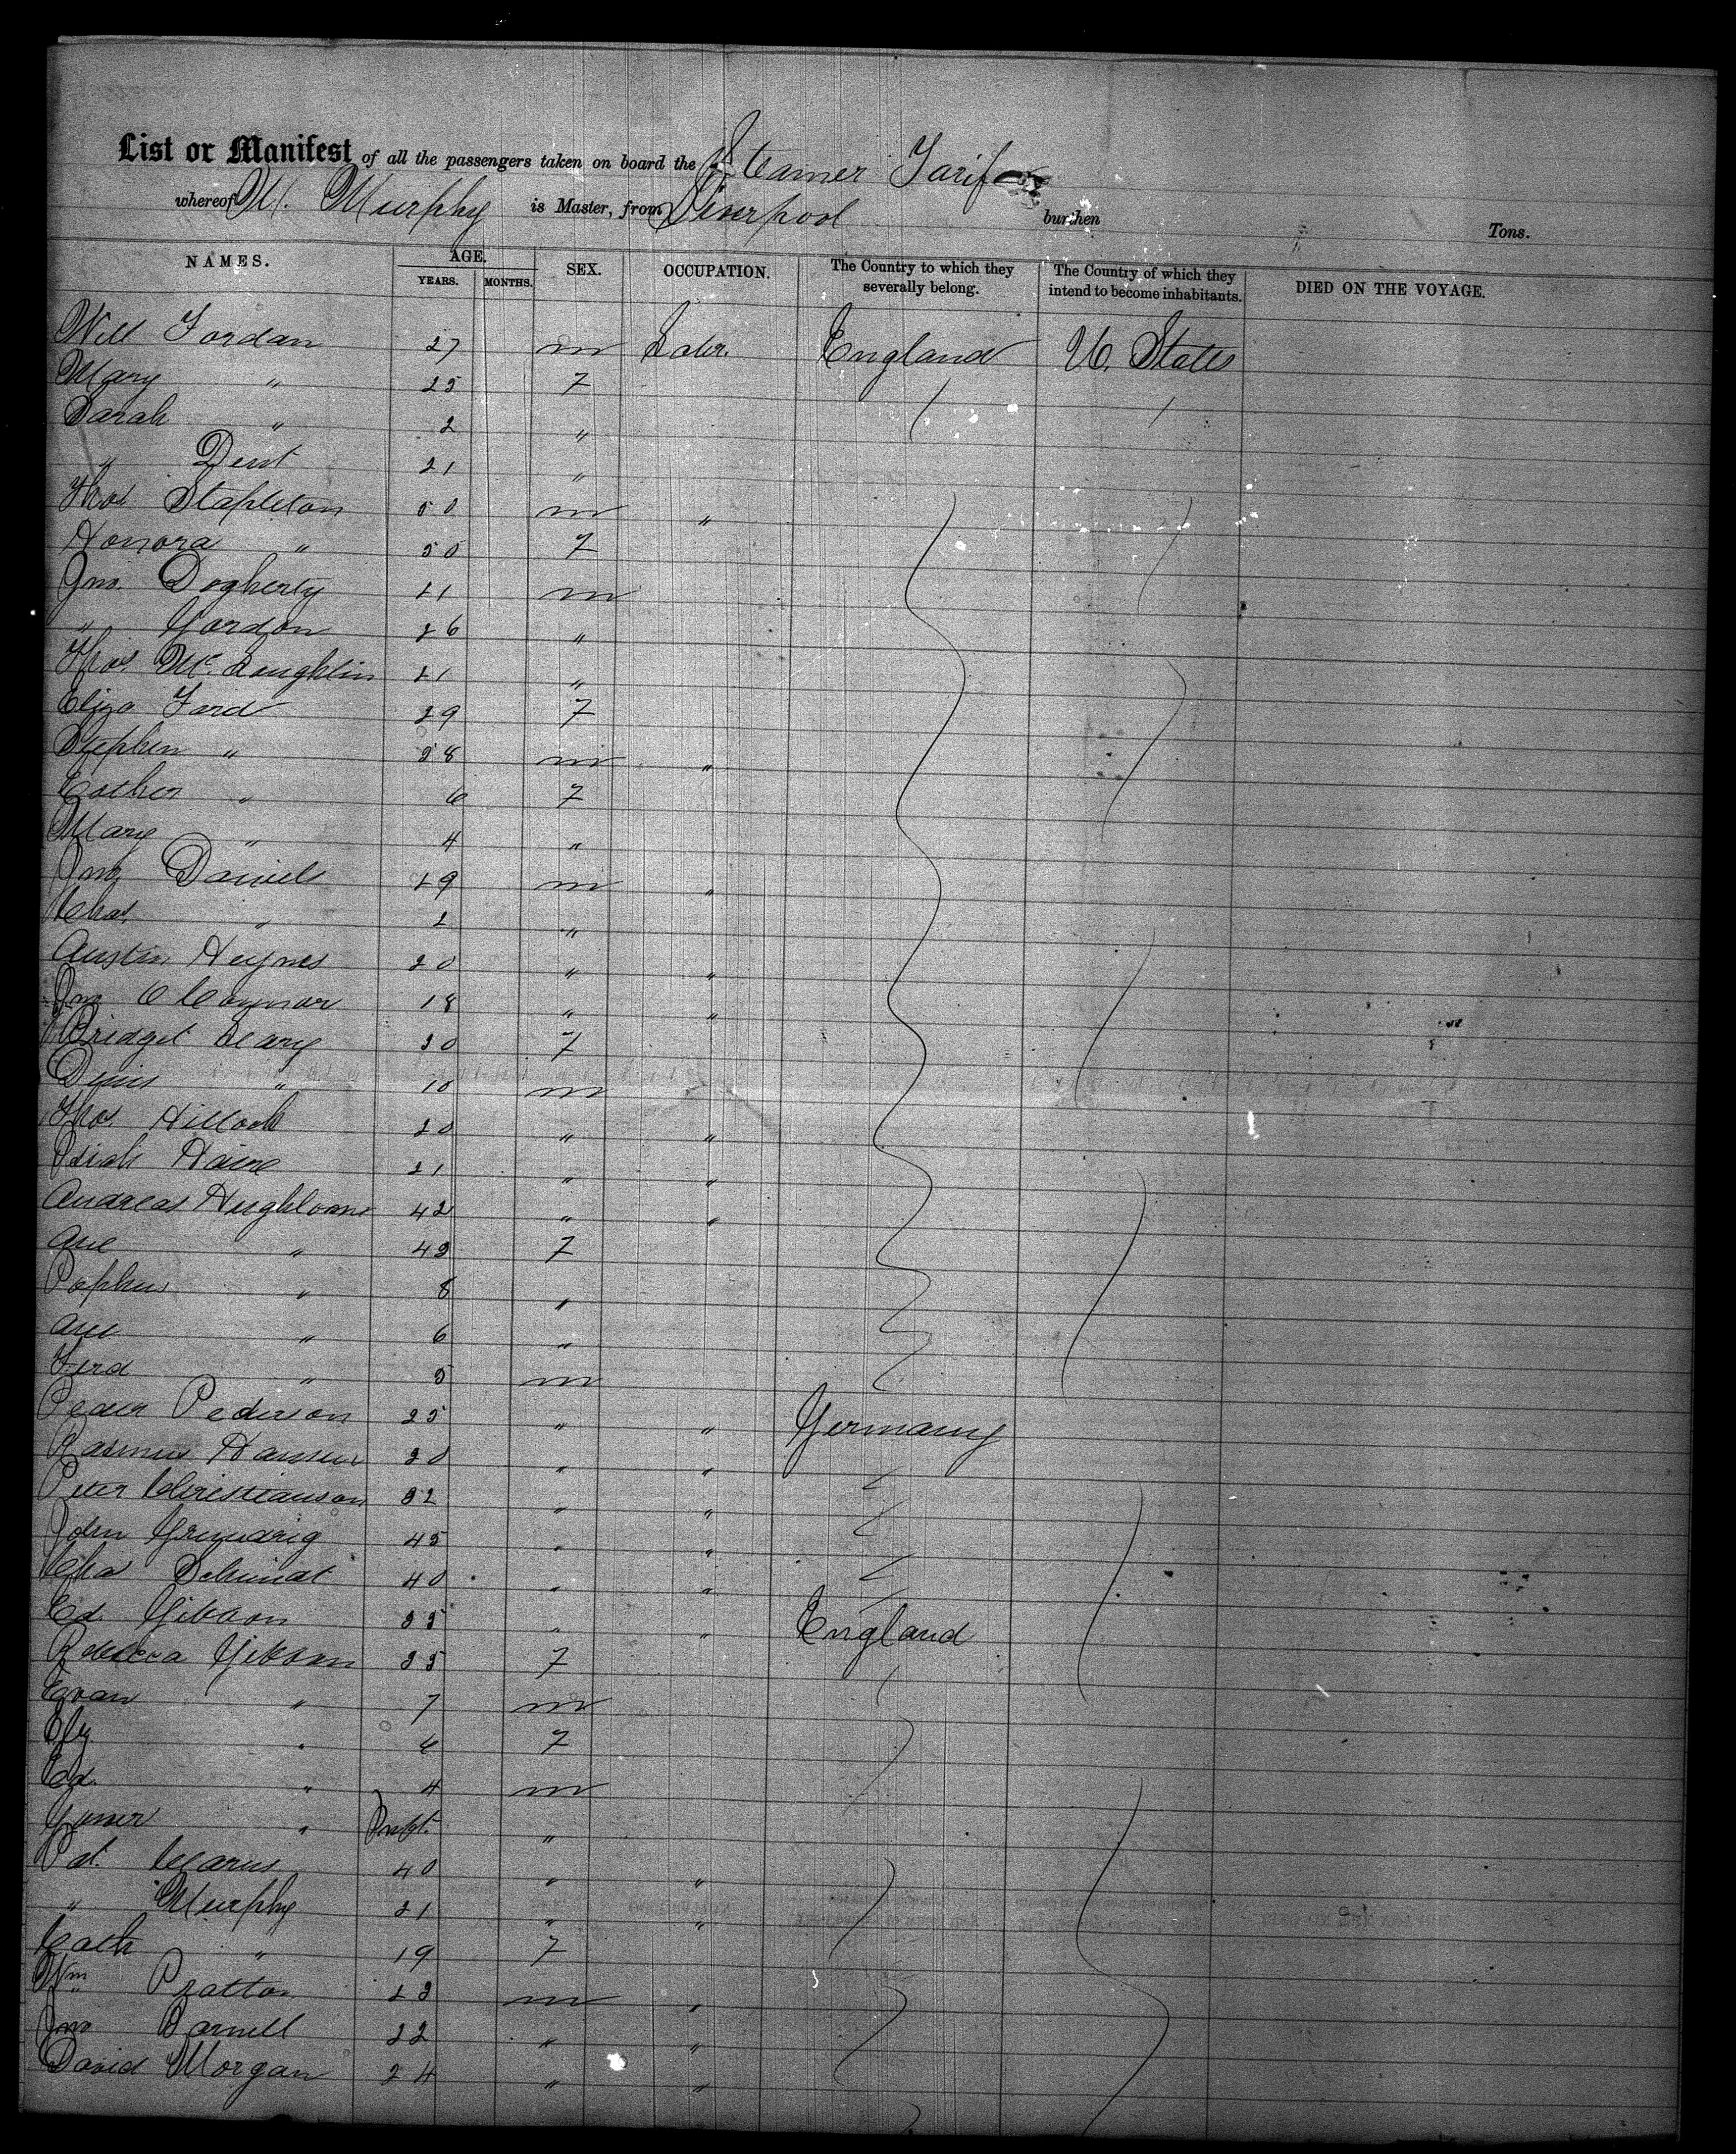 List or Manifest of all the passengers taken on board the Steamer Tarifa
whereof M. Murphy is Master, from Liverpool burthen Tons.
NAMES. AGE. YEARS. MONTHS. SEX. OCCUPATION. The Country to which they severally belong. The Country of which they intend to become inhabitants. DIED ON THE VOYAGE.
Will Jordan 27 m Labr. England U. States
Mary " 25 7
Sarah " 2 "
" Dent 21 "
Thos Stapleton 50 m "
Honora " 50 7
Jno. Dogherty 21 m
" Gordon 26 "
Thos. McLoughlin 21 "
Eliza Ford 29 7
Stephen " 38 m "
Esther " 6 7
Mary " 4 "
Jno Daniels 29 m "
Chas. " 2 "
Austin Heynes 20 " "
Jno O Connor 18 " "
Bridget Leary 30 7
Denis " 10 m
Thos. Hillock 20 " "
21 " "
Andreas 42 " "
Ane " 43 7
" 8 "
Ane " 6 "
Ferd " 5 m
Peder Pederson 25 " " Germany
Rasmus Hansen 30 " "
Peter Christianson 32 " "
John 45 " "
Cha Schmidt 40 " "
Ed. Gibson 35 " " England
Rebecca Gibson 35 7
Evan " 7 m
" 6 7
Ed. " 4 m
" Inft. "
Pat. 40 " "
" Murphy 21 " "
Cath " 19 7
Wm Pratton 23 m "
Jno Barnell 22 " "
David Morgan 24 " "